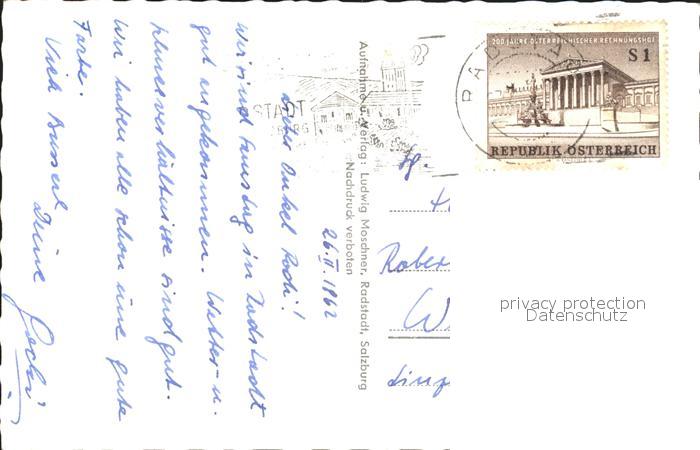 26.II.1962
Lieber Onkel Rodi!
Wir sind Samstag in Radstadt
gut angekommen. Wetter- u.
Schneeverhältnisse sind gut.
Wir haben alle schon eine gute
Farbe.
Viele Bussi
Deine
Aufnahme u. Verlag: Ludwig Moschner, Radstadt, Salzburg
Nachdruck verboten
STADT
RAD
200 JAHRE ÖSTERREICHISCHER RECHNUNGSHOF
S 1
REPUBLIK ÖSTERREICH
Rober
W
Linz
privacy protection
Datenschutz